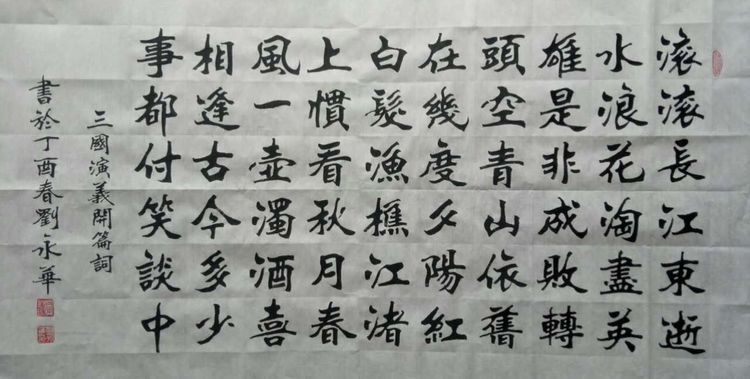 滚滚長江東逝
水浪花淘盡英
雄是非成敗轉
頭空青山依舊
在幾度夕陽紅
白髮漁樵江渚
上慣看秋月春
風一壺濁酒喜
相逢古今多少
事都付笑談中
三國演義開篇詞
書於丁酉春劉永華